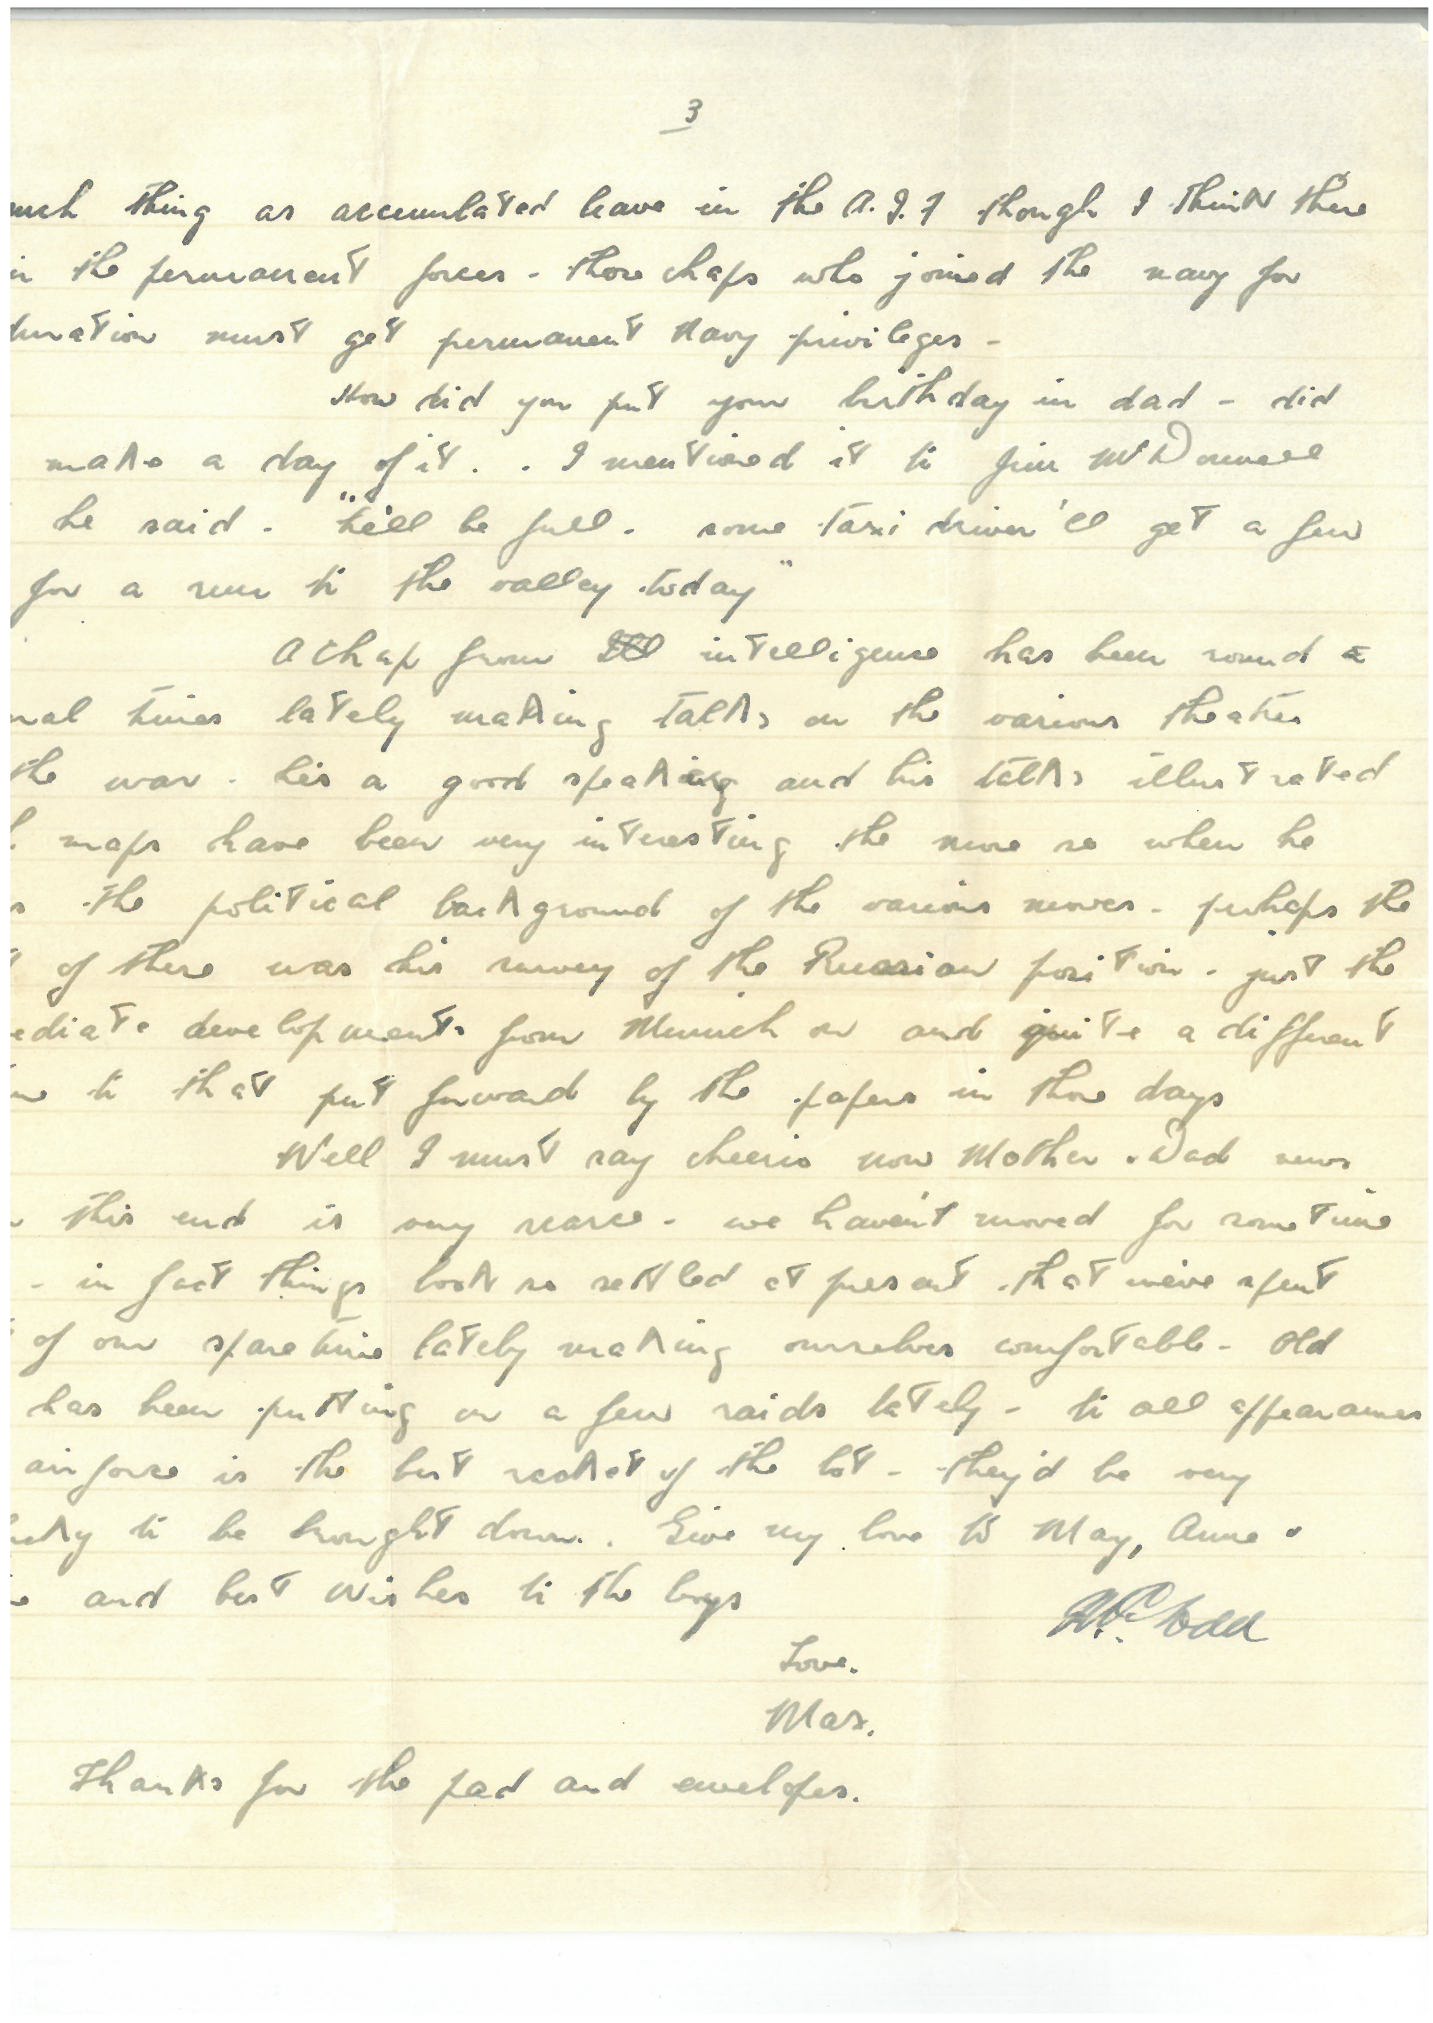 3
such thing as accumulated leave in the A.I.F though I think there
in the permanent forces - those chaps who joined the navy for
duration must get permanent Navy privileges -
How did you put your birthday in dad - did
make a day of it . . I mentioned it to Jim McDonnell
he said - "he'll be full - some taxi driver'll get a few
for a run to the valley today"
A chap from intelligence has been round a
times lately making talks on the various theatres
the war - he's a good speaking and his talks illustrated
maps have been very interesting the more so when he
the political background of the various moves - perhaps the
of these was his survey of the Russian position - just the
ediate developments from Munich on and quite a different
to that put forward by the papers in those days
Well I must say cheerio now Mother & Dad news
this end is very scarce - we haven't moved for sometime
- in fact things look so settled at present that we've spent
of our sparetime lately making ourselves comfortable - Old
has been putting on a few raids lately - to all appearances
airforce is the best racket of the lot - they'd be very
to be brought down. Give my love to May, Anne &
and best wishes to the boys
Todd
Love.
Max.
Thanks for the pad and envelopes.